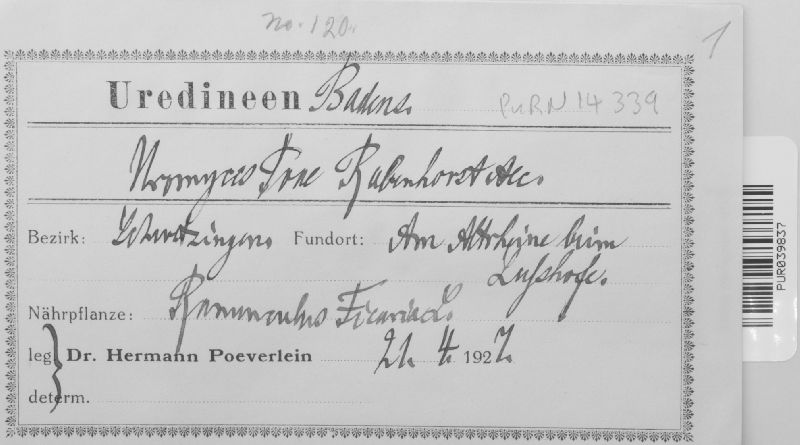 No. 120.
1
Uredineen Badens.
PURN 14339
Uromyces Poae Rabenhorst Aec.
Bezirk: Schwetzingen. Fundort: Am Altrheine beim
Lußhofe.
Nährpflanze: Ranunculus Ficaria L.
leg. Dr. Hermann Poeverlein 21. 4. 1927.
determ.
PUR039837